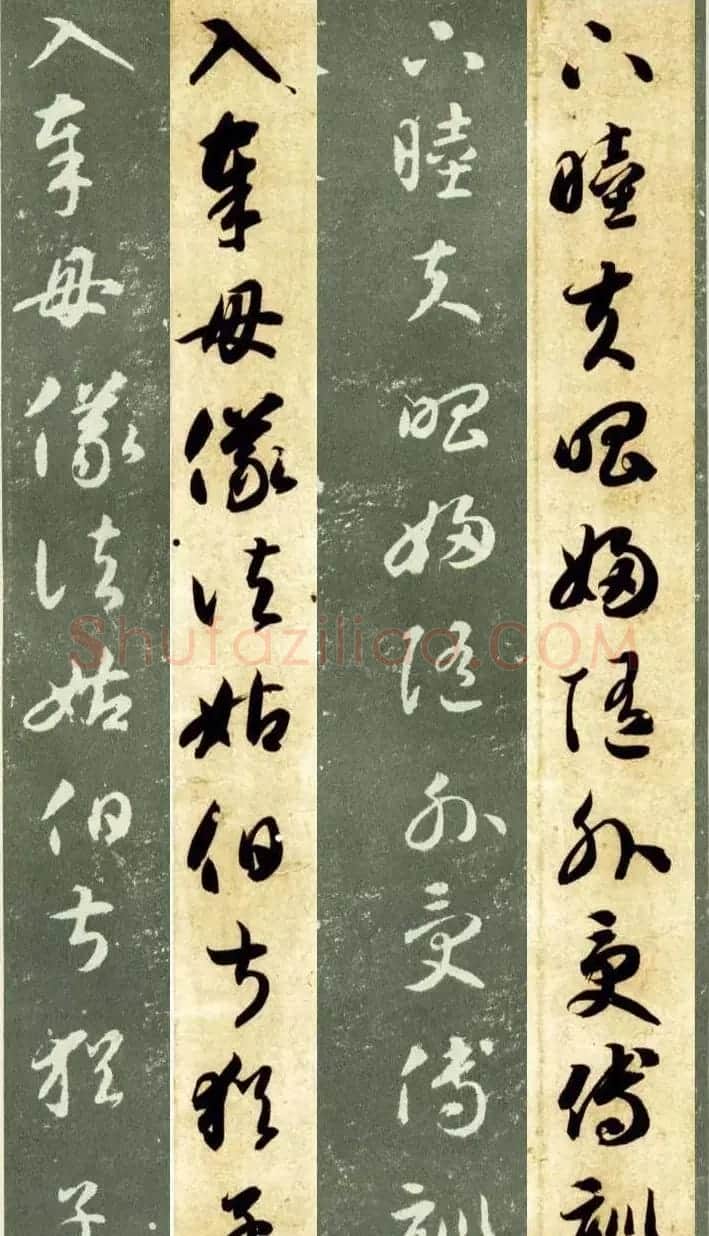 下睦夫唱婦隨外受傅訓
下睦夫唱婦隨外受傅訓
入奉母儀諸姑伯叔猶子
入奉母儀諸姑伯叔猶子
Shufaziliao.COM